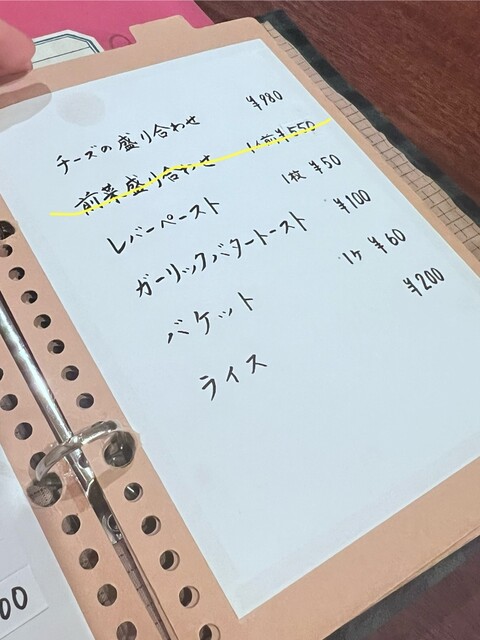 チーズの盛り合わせ ¥980
前菜盛り合わせ 1人前¥550
レバーペースト 1枚 ¥50
ガーリックバタートースト ¥100
バケット 1ケ ¥60
ライス ¥200
00